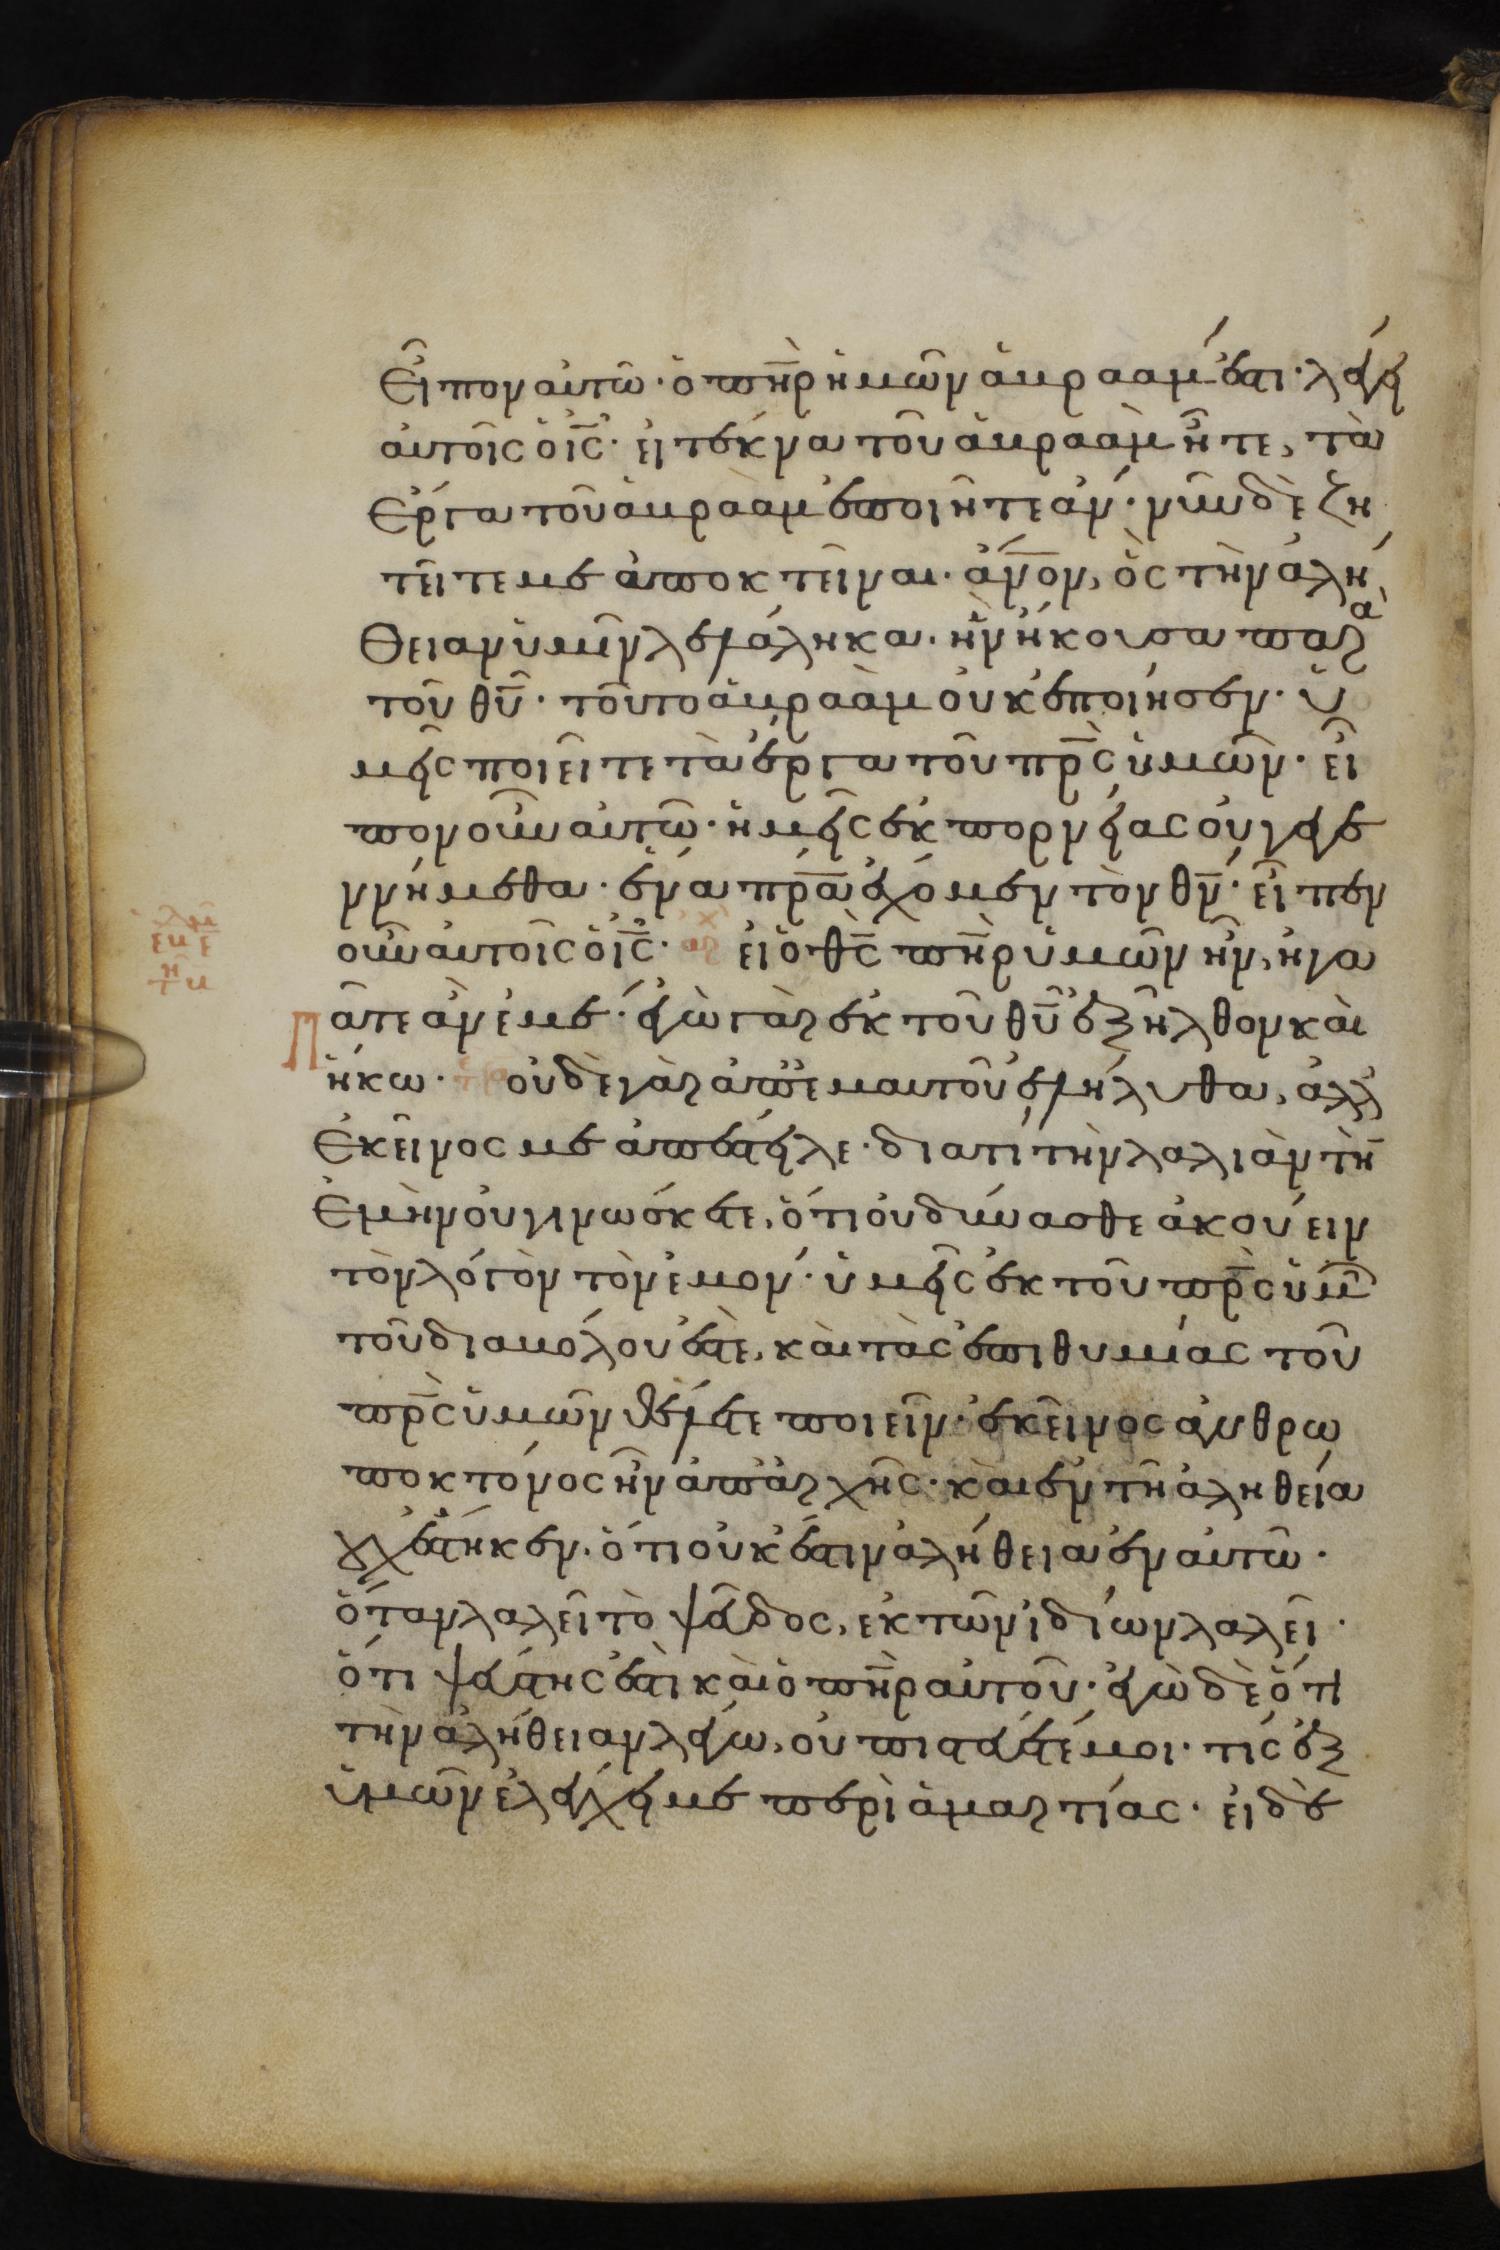 εἶπον αὐτῶ· ὁ πηρ ἡμῶν ἀβραάμ ἐστι· λέγει
αὐτοῖς ὁ ις· εἰ τέκνα τοῦ ἀβραὰμ ἦτε, τὰ
ἔργα τοῦ ἀβραὰμ ἐποιῆτε ἄν· νῦν δὲ ζη
τεῖτε με ἀποκτεῖναι· ἄνον, ὃς τὴν ἀλή
θειαν ὑμῖν λελάληκα· ἣν ἤκουσα παρὰ
τοῦ θυ· τοῦτο ἀβραὰμ οὐκ ἐποίησεν· ὑ
μεῖς ποιεῖτε τὰ ἔργα τοῦ πρς ὑμῶν· εἶ
πον οὖν αὐτῶ· ἡμεῖς ἐκ πορνείας οὐ γεγε
ννήμεθα· ἕνα πρα ἔχομεν τὸν θν· εἶπεν
οὖν αὐτοῖς ὁ ις· εἰ ὁ θς πηρ ὑμῶν ἦν, ἠγα
πᾶτε ἂν ἐμέ· ἐγὼ γὰρ ἐκ τοῦ θυ ἐξῆλθον καὶ
ἥκω· οὐδὲ γὰρ ἀπ' ἐμαυτοῦ ἐλήλυθα, ἀλλ'
ἐκεῖνος με ἀπέστειλε· διατί τὴν λαλιὰν τὴν
ἐμὴν οὐ γινώσκετε, ὅτι οὐ δύνασθε ἀκούειν
τὸν λόγον τὸν ἐμόν· ὑμεῖς ἐκ τοῦ πρς ὑμῶν
τοῦ διαβόλου ἐστὲ, καὶ τὰς ἐπιθυμίας τοῦ
πρς ὑμῶν θέλετε ποιεῖν· ἐκεῖνος ἀνθρω
ποκτόνος ἦν ἀπ' ἀρχῆς· καὶ ἐν τῆ ἀληθεία
οὐχ ἕστηκεν· ὅτι οὐκ ἔστιν ἀλήθεια ἐν αὐτῶ·
ὅταν λαλεῖ τὸ ψεῦδος, ἐκ τῶν ἰδίων λαλεῖ·
ὅτι ψεύστης ἐστὶ καὶ ὁ πηρ αὐτοῦ· ἐγὼ δὲ ὅτι
τὴν ἀλήθειαν λέγω, οὐ πιστεύετέ μοι· τίς ἐξ
ὑμῶν ἐλέγχει με περὶ ἁμαρτίας· εἰ δὲ